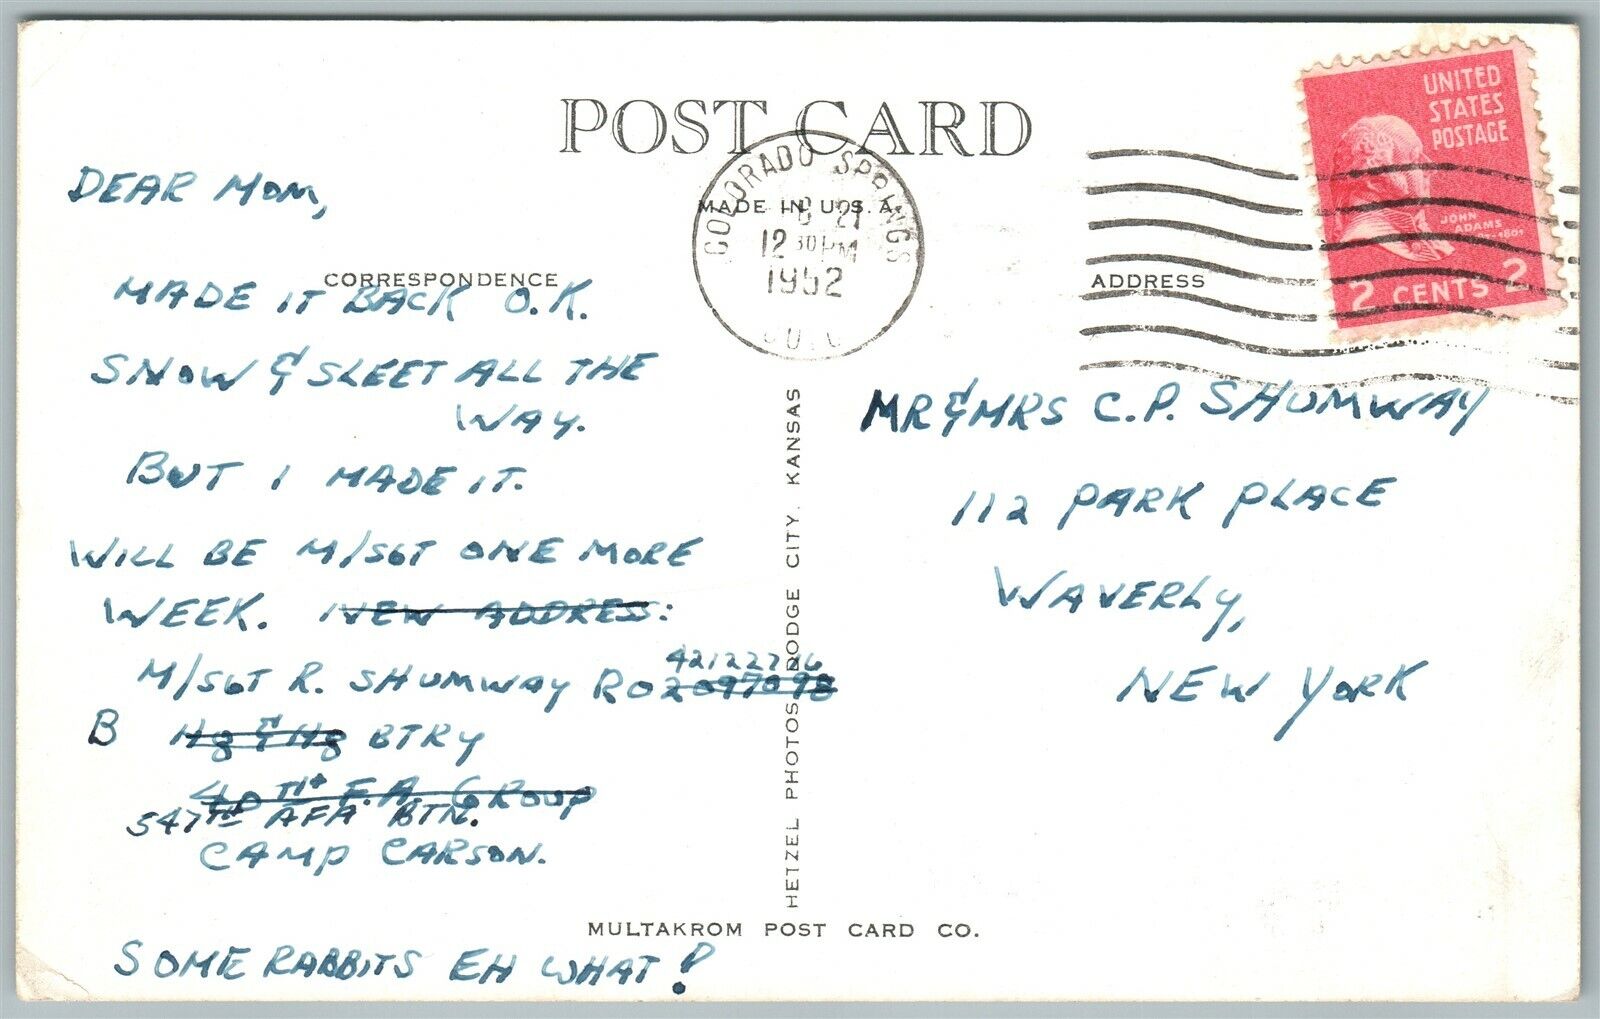 POST CARD
MADE IN U.S.A.
COLORADO SPRINGS
21
12 30 PM
1952
COLO
UNITED
STATES
POSTAGE
JOHN
ADAMS
2 CENTS 2
CORRESPONDENCE
ADDRESS
DEAR MOM,
MADE IT BACK O.K.
SNOW & SLEET ALL THE
WAY.
BUT I MADE IT.
WILL BE M/SGT ONE MORE
WEEK. NEW ADDRESS:
42122716
M/SGT R. SHUMWAY RO 2097098
B Hq & Hq BTRY
40TH F.A. GROUP
547TH AFA BTN.
CAMP CARSON.
SOME RABBITS EH WHAT!
HETZEL PHOTOS DODGE CITY, KANSAS
MR & MRS C.P. SHUMWAY
112 PARK PLACE
WAVERLY,
NEW YORK
MULTAKROM POST CARD CO.